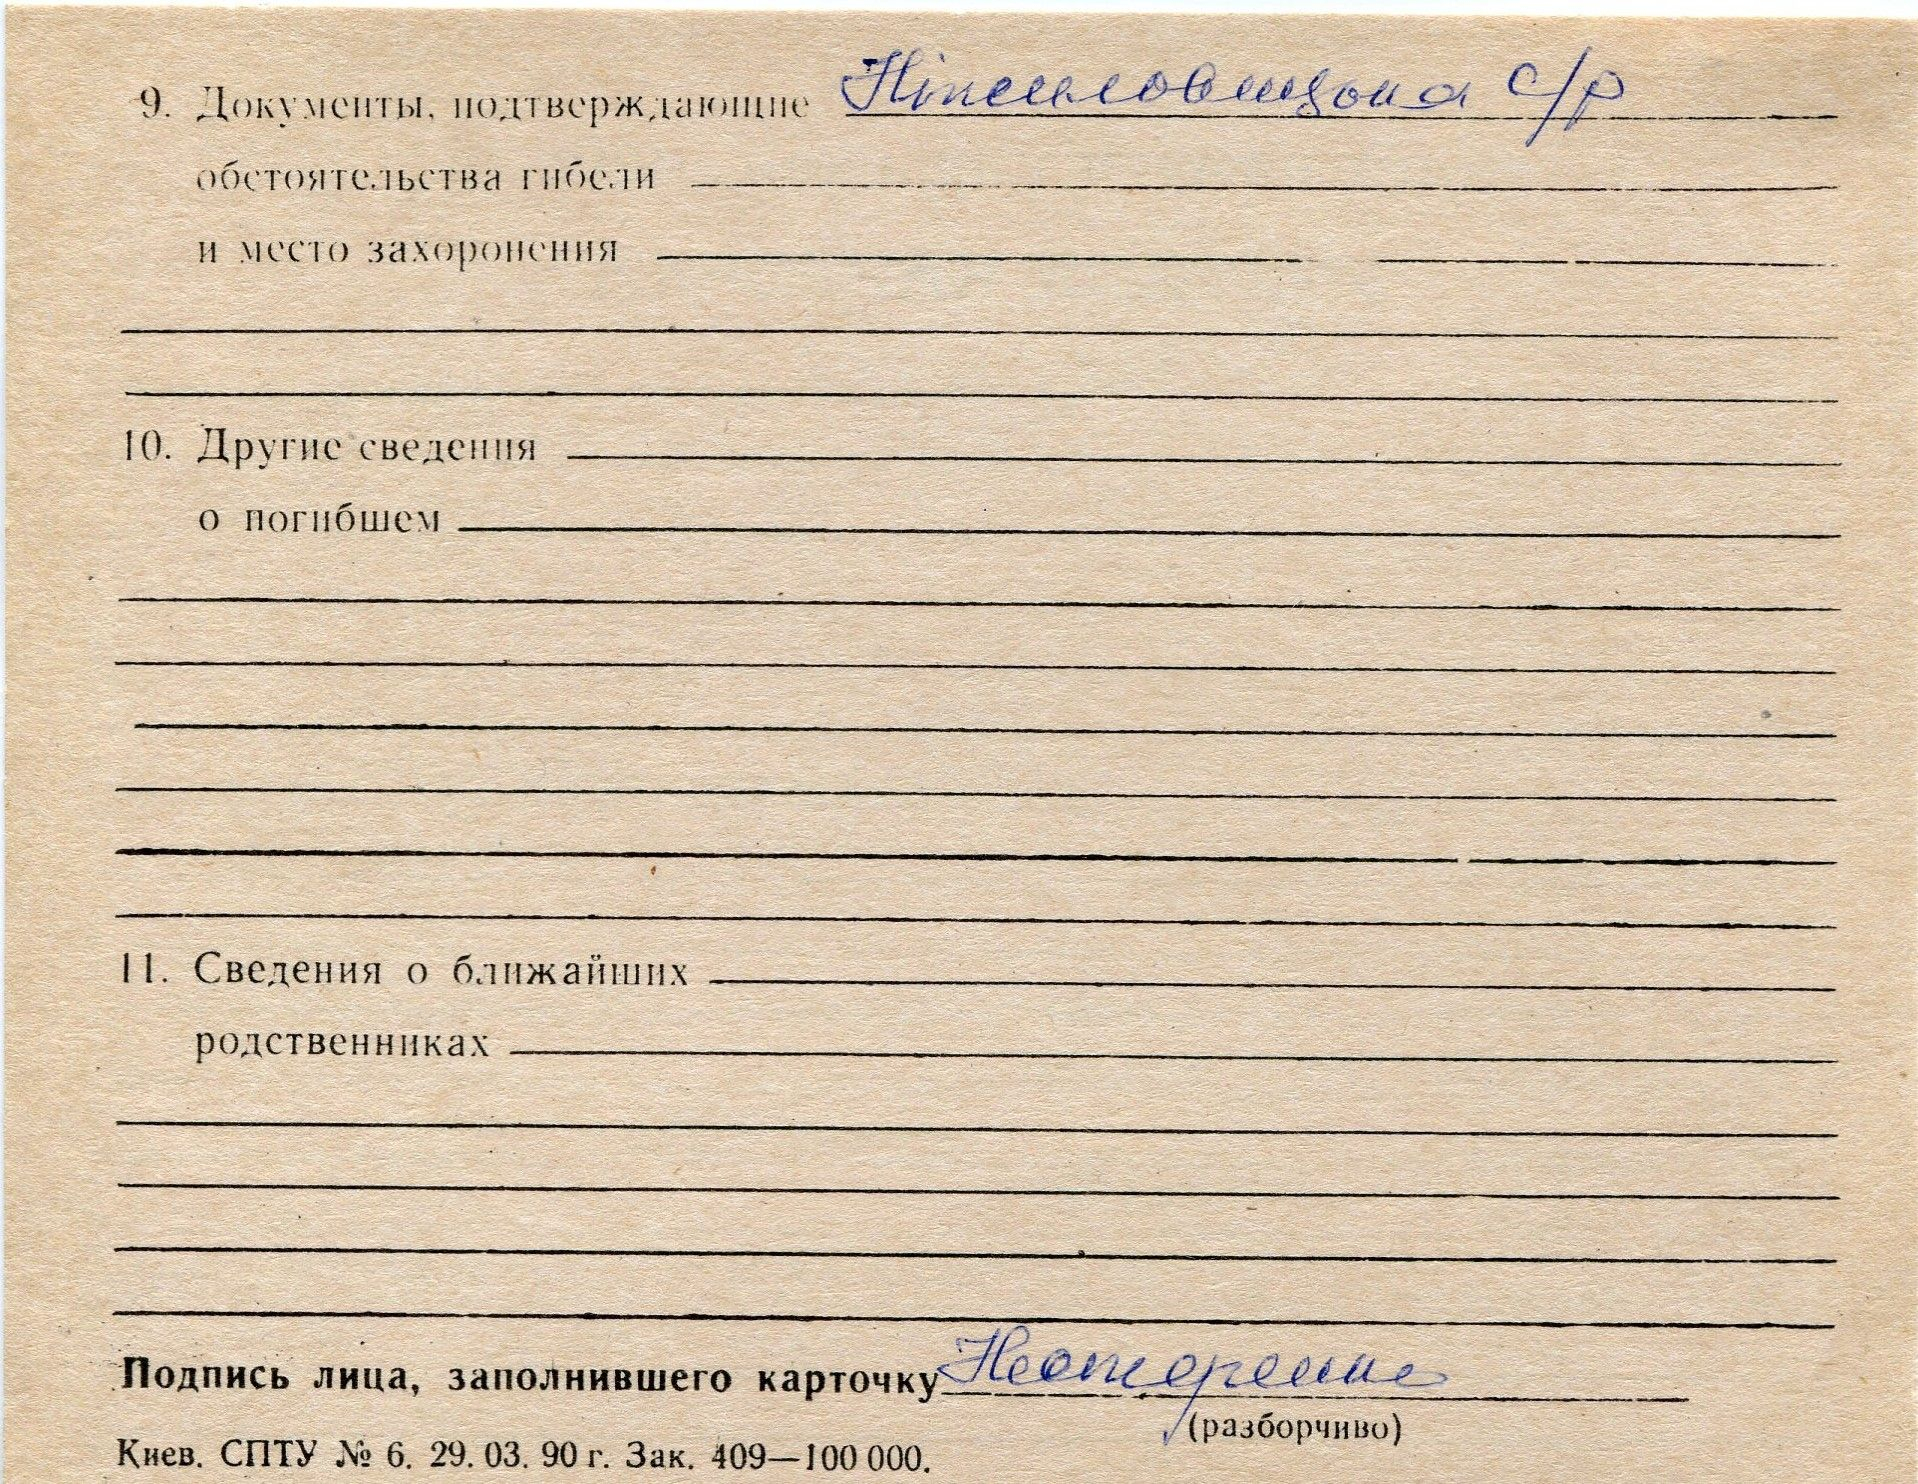 9. Документы, подтверждающие с/р
обстоятельства гибели
и место захоронения
10. Другие сведения
о погибшем
11. Сведения о ближайших
родственниках
Подпись лица, заполнившего карточку
(разборчиво)
Киев. СПТУ № 6. 29. 03. 90 г. Зак. 409—100 000.